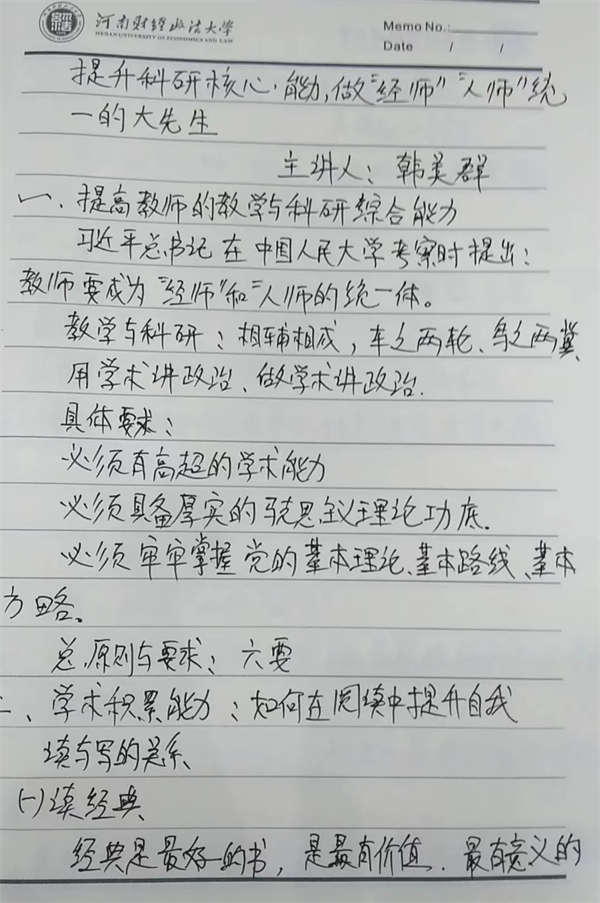 河南财经政法大学
HENAN UNIVERSITY OF ECONOMICS AND LAW
Memo No.:
Date / /
提升科研核心能力,做"经师""人师"统
一的大先生
主讲人:韩美群
一、提高教师的教学与科研综合能力
习近平总书记在中国人民大学考察时提出:
教师要成为"经师"和"人师的统一体。
教学与科研:相辅相成,车之两轮、鸟之两冀
用学术讲政治、做学术讲政治.
具体要求:
必须有高超的学术能力
必须具备厚实的马克思主义理论功底.
必须牢牢掌握党的基本理论、基本路线、基本
方略。
总原则与要求:六要
二、学术积累能力:如何在阅读中提升自我
读与写的关系
(一)读经典
经典是最好的书,是最有价值.最有意义的